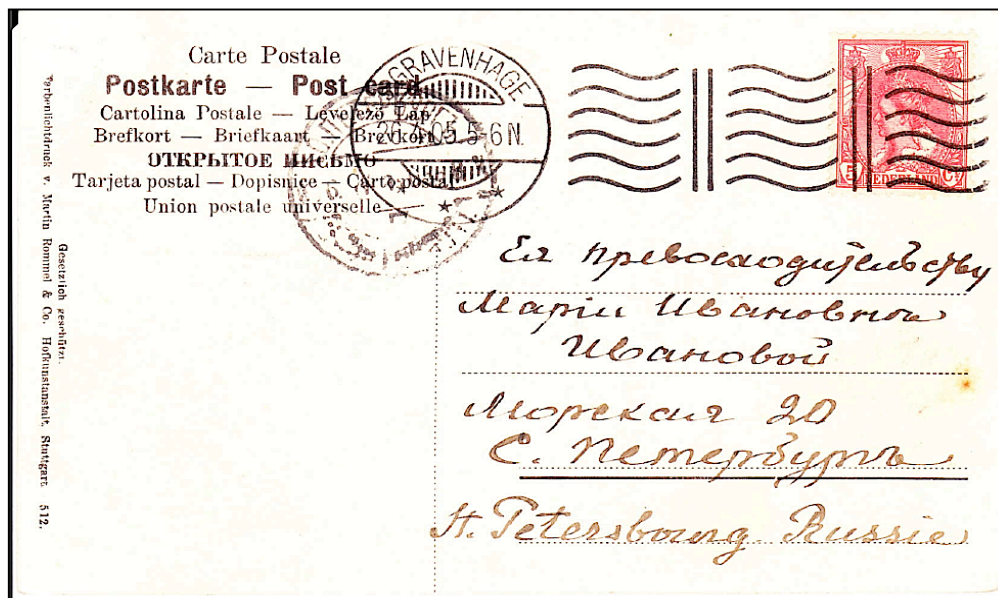 Carte Postale
Postkarte — Post card
Cartolina Postale — Levelező Lap
Brefkort — Briefkaart — Brevkort
ОТКРЫТОЕ ПИСЬМО
Tarjeta postal — Dopisnice — Carte postal
Union postale universelle
'S GRAVENHAGE
5-6N.
5 NEDERLAND Ct
Ея Превосходительству
Маріи Ивановнѣ
Ивановой
Морская 20
С. Петербургъ
St. Petersbourg. Russie
Gesetzlich geschützt.
Farbenlichtdruck v. Martin Rommel & Co. Hofkunstanstalt, Stuttgart 512.